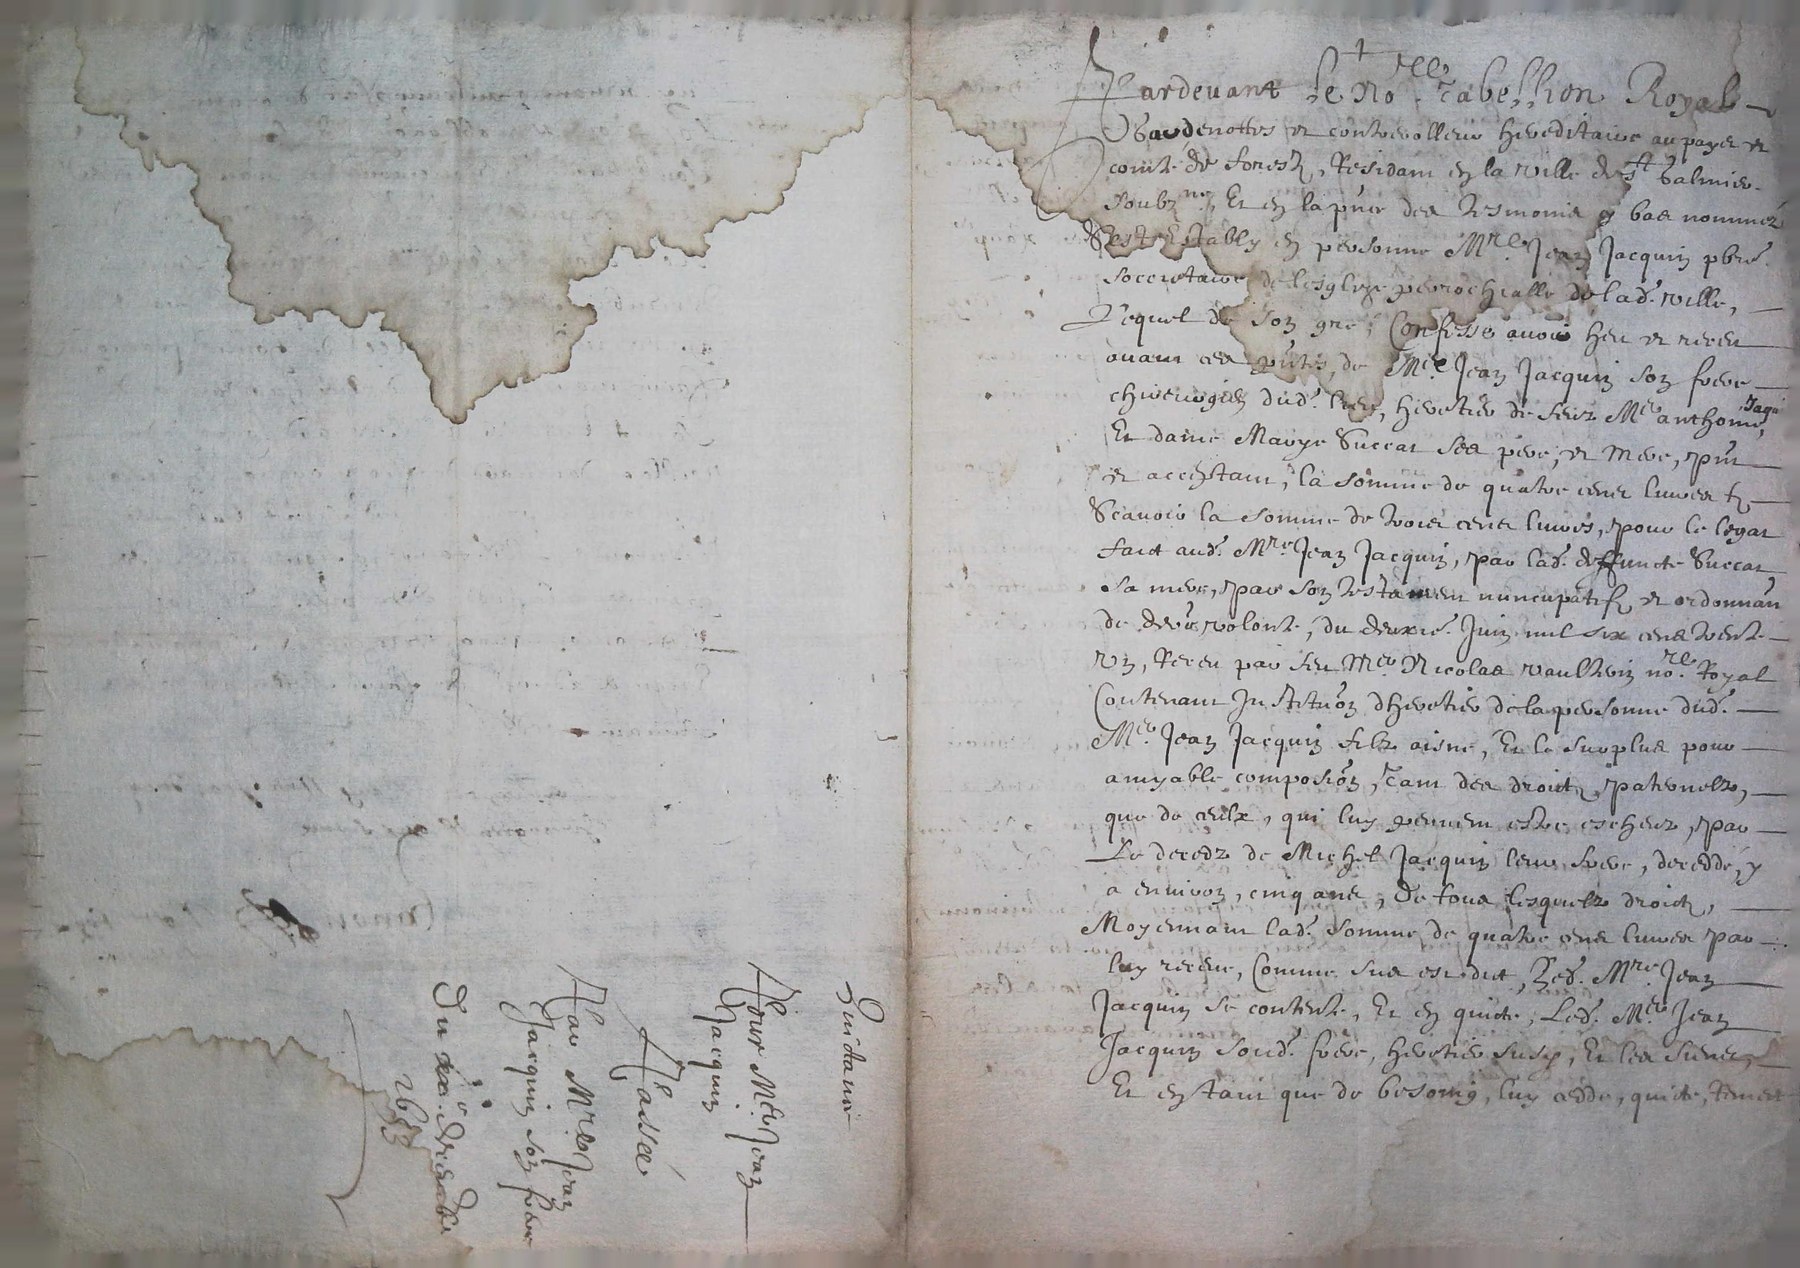 Quictance
Pour Me Jean
Jacquin
Passée
Par Mre Jean
Jacquin son frere
Du xxe
1653
Pardevant le No.re Tabellion Royal
Gardenottes et controolleur hereditaire au payes et
comté de forest, Residant en la ville de St Galmier
soubzne, Et en la pñce des tesmoings y bas nommez
S'est Estably en personne Mre Jean Jacquin pbre
soccietaire de lesglize parrochialle de lad. ville,
Lequel de son gré, Confesse avoir heu et receu
avant ces pñtes, de Me Jean Jacquin son frere
chirurgien dud. lieu, heretier de feuz Me anthoine Jaqu
Et dame Marye Succat ses pere, et mere, pñt
et acceptant, la somme de quatre cens livres
Scavoir la somme de trois cens livres, pour le legat
faict aud. Mre Jean Jacquin, par lad. deffuncte Succat
sa mere, par son testament nuncupatif et ordonnan
de derñ volonté, du deuxie. Juin mil six cens trente
un, Receu par feu Me Nicolas vaultrin no.re Royal
Contenant Institũon dheretier de la personne dud.
Me Jean Jacquin filz aisné, Et le surplus pour
amyable composiõn, Tant des droictz paternelz,
que de ceulx, qui luy peuvent estre escheuz, par
Le decedz de Michel Jacquin leur frere, deceddé, y
a environ, cinq ans, De tous lesquelz droictz,
Moyennant lad. somme, de quatre cens livres par
luy receue, Comme sus est dict, Led. Mre Jean
Jacquin se contente, Et en quicte, Led. Me Jean
Jacquin soud. frere, heretier susd, Et les siens,
Et en tant que de besoing, luy cedde, quicte, Remet